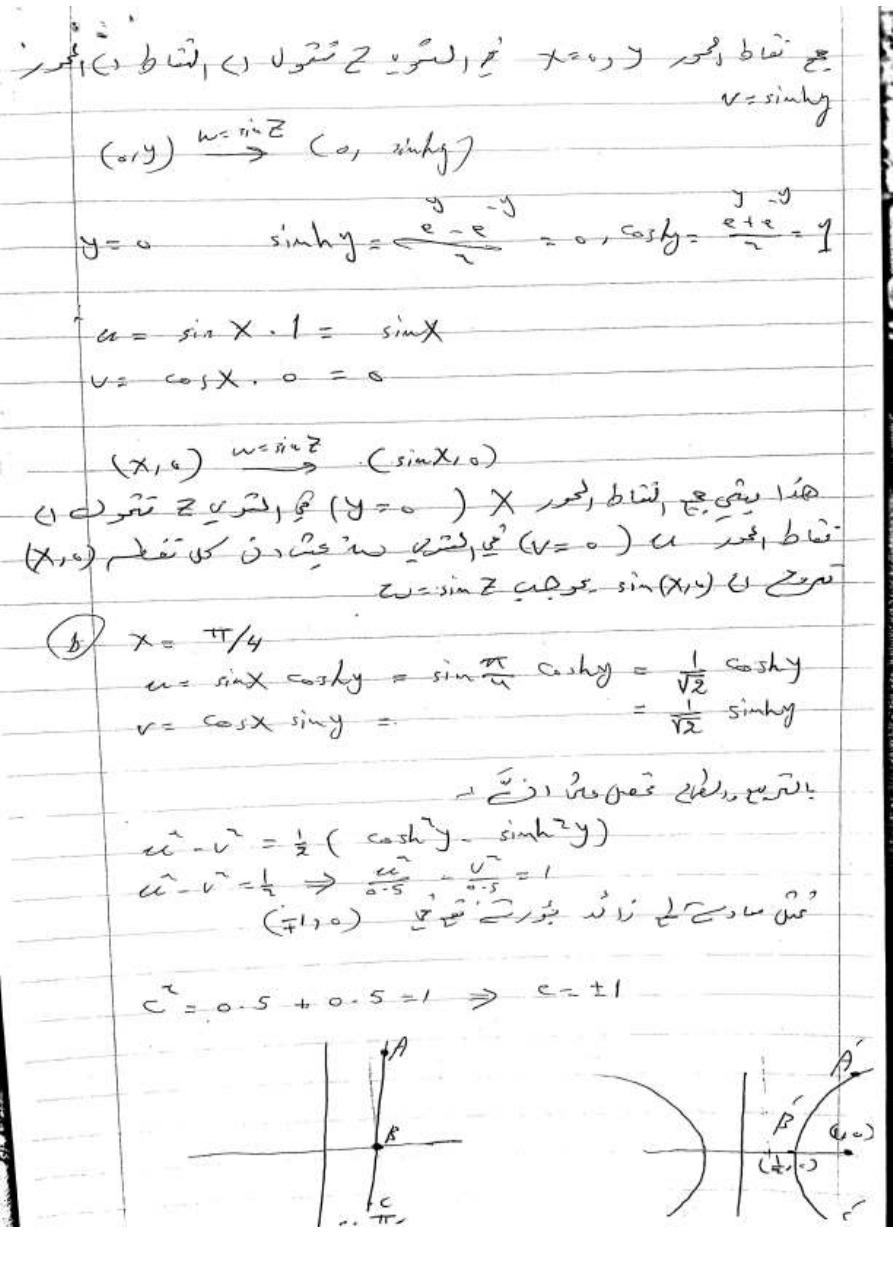 نقاط المحور y و x=0 في المستوي z تتحول الى النقاط
v = sinhy
(0,y) w=sin z → (0, sinhy)
y=0 sinhy = (e^y - e^-y)/2 = 0 , coshy = (e^y + e^-y)/2 = 1
u = sin X . 1 = sin X
v = cos X . 0 = 0
(X,0) w=sin z → (sin X, 0)
هذا يعني جميع النقاط المحور X (y=0) في المستوي z تتحول الى
نقاط المحور u (v=0) في المستوي كل نقطة (X,0)
sin(X,0) بموجب w = sin z
b X = π/4
u = sin X coshy = sin π/4 coshy = 1/√2 coshy
v = cos X sin y = = 1/√2 sinhy
بالتربيع والطرح نحصل على
u² - v² = 1/2 ( cosh²y - sinh²y )
u² - v² = 1/2 ⇒ u²/0.5 - v²/0.5 = 1
زائد تقع في (∓1, 0)
c² = 0.5 + 0.5 = 1 ⇒ c = ±1
A A´
B B´ (1,0)
C